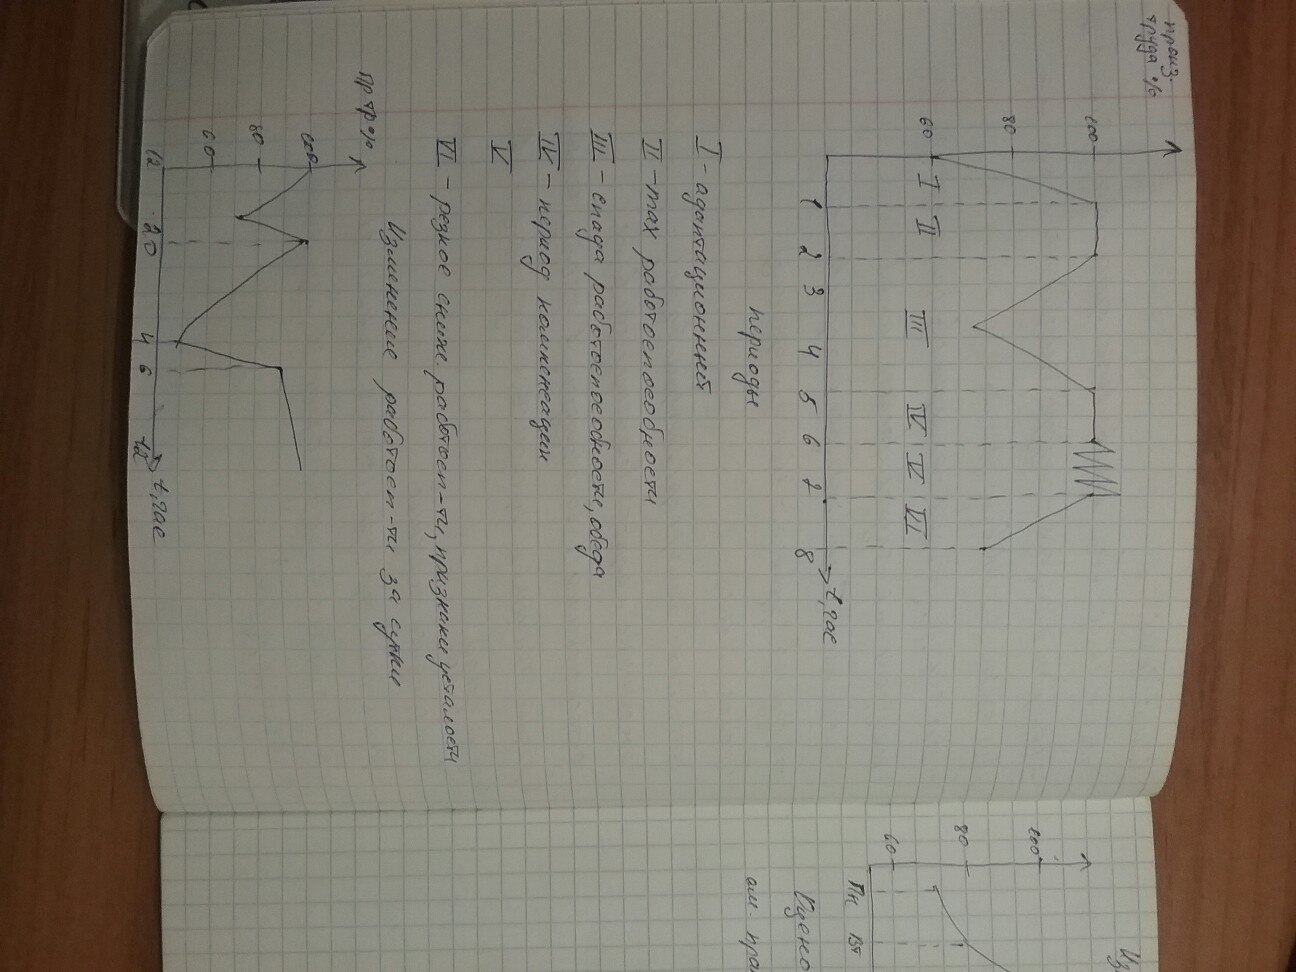 произ.
труда %
100
80
60
I II III IV V VI
1 2 3 4 5 6 7 8 t, час
периоды
I - адаптационный
II - max работоспособности
III - спада работоспособности, обеда
IV - период компенсации
V
VI - резкое сниже. работосп-ти, признаки усталости
Изменение работосп-ти за сутки
Пр тр %
100
80
60
12 20 4 6 12 t, час
100
80
60
Пн Вт